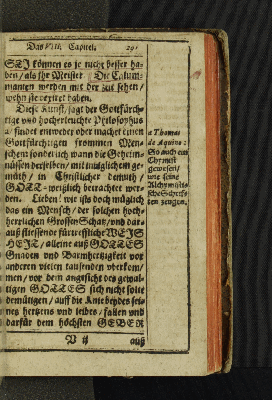 Das VIII. Capitel. 291
SEJ können es je nicht besser ha-
ben / als ihr Meister. Die Calum-
nianten werden mit der Zeit sehen /
wehn sie vexiret haben.
Diese Kunst / sagt der Gottsfürch-
tige und hocherleuchte Philosophus
a / findet entweder oder machet einen
Gottfürchtigen frommen Men-
schen / sonderlich wann die Geheim-
nüssen derselben / mit müglichem ge-
müth / in Christlicher demuth /
GOTT-weißlich betrachtet wer-
den. Lieber! wie ists doch müglich
das ein Mensch / der solchen hoch-
herrlichen Grossen Schatz / und dar-
auß fliessende fürtrefflich WEIS-
HEIT / alleine auß GOTTES
Gnaden und Barmhertzigkeit vor
anderen vielen tausenden überkom-
men / vor dem angesicht des gewal-
tigen GOTTES sich nicht solte
demütigen / auff die Knie beydes sei-
nes hertzens und leibes / fallen und
darfür dem höchsten GEBER
V ij auß
a Thomas
de Aquino:
So auch ein
Chymist
gewesen /
wie seine
Alchymisti-
sche Schrif-
ten zeugen.